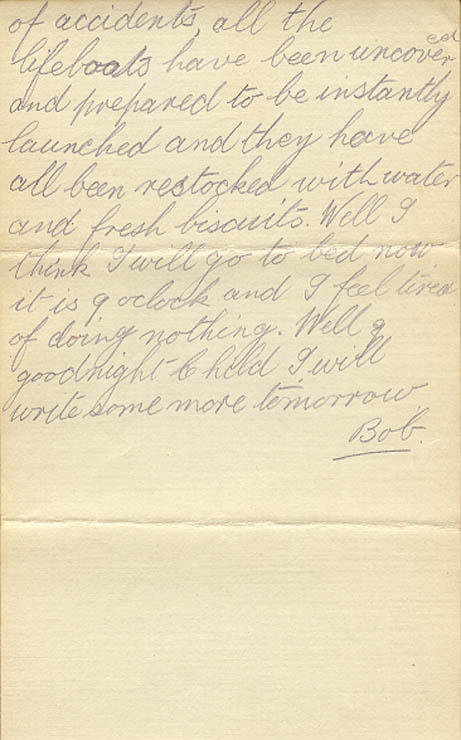 of accidents, all the
lifeboats have been uncovered
and prepared to be instantly
launched and they have
all been restocked with water
and fresh biscuits. Well I
think I will go to bed now
it is 9 oclock and I feel tired
of doing nothing. Well g
goodnight Child I will
write some more tomorrow.
Bob.